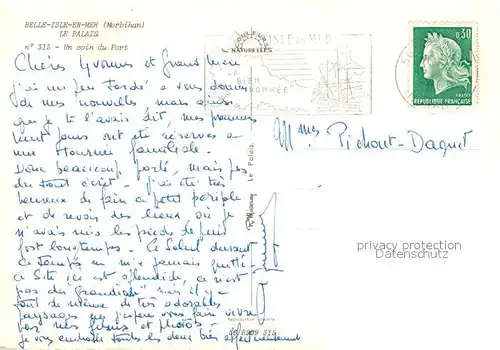 BELLE-ISLE-EN-MER (Morbihan)
LE PALAIS.
n° 315 - Un coin du Port
NATURELLES
ISLE en MER
LA
BIEN
NOMMÉE
0,30
RÉPUBLIQUE FRANÇAISE
Chères Yvonnes et Grand'mère
j'ai un peu tardé à vous donner
de mes nouvelles mais ainsi
que je te l'avais dit, mes premiers
jours ont été réservés à
une tournée familiale.
Donc beaucoup parlé, mais pas
du tout écrit. J'ai été très
heureux de faire ce petit périple
et de revoir des lieux où je
n'avais mis les pieds depuis
fort longtemps. Ce soleil durant
ce temps ne m'a jamais quitté
Ce site ici est splendide, ce n'est
pas du "Grandiose" mais il y a
tout de même de très adorables
paysages que j'espère vous faire vivre
par mes films et photos.
je vous embrasse toutes les deux bien affectueusement
Mmes Pichout-Daguet
Le Palais.
privacy protection
Datenschutz